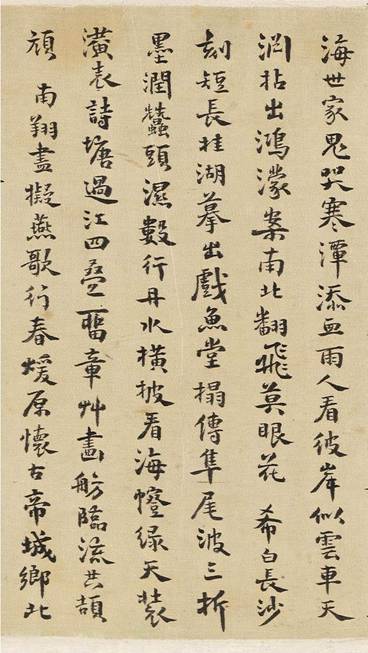 海世家鬼哭寒潭添血雨人看彼岸似雲車天
淵拈出鴻濛案南北翻飛莫眼花 希白長沙
刻短長桂湖摹出戲魚堂搨傳隼尾波三折
墨潤蠶頭濕數行丹水橫披看海幢綠天裝
潢表詩塘過江四疊留章艸畫舫臨流共頡
頏 南翔盡擬燕歌行春煖原懷古帝城鄉北